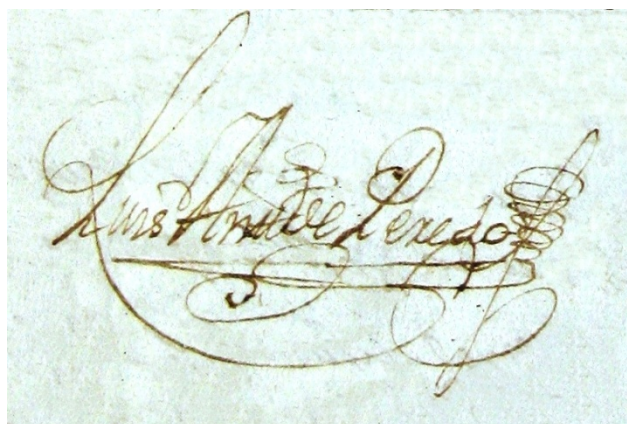 Luis Ana de Peredo